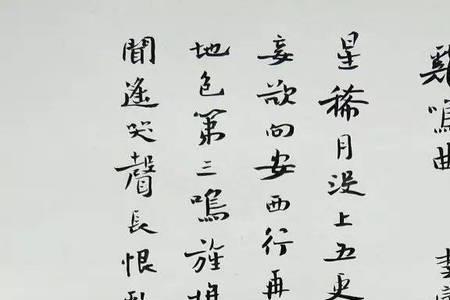 雞鳴曲 李
星稀月没上五更
妾欲向安西行再
地色第三鳴旌
聞遙哭聲長恨